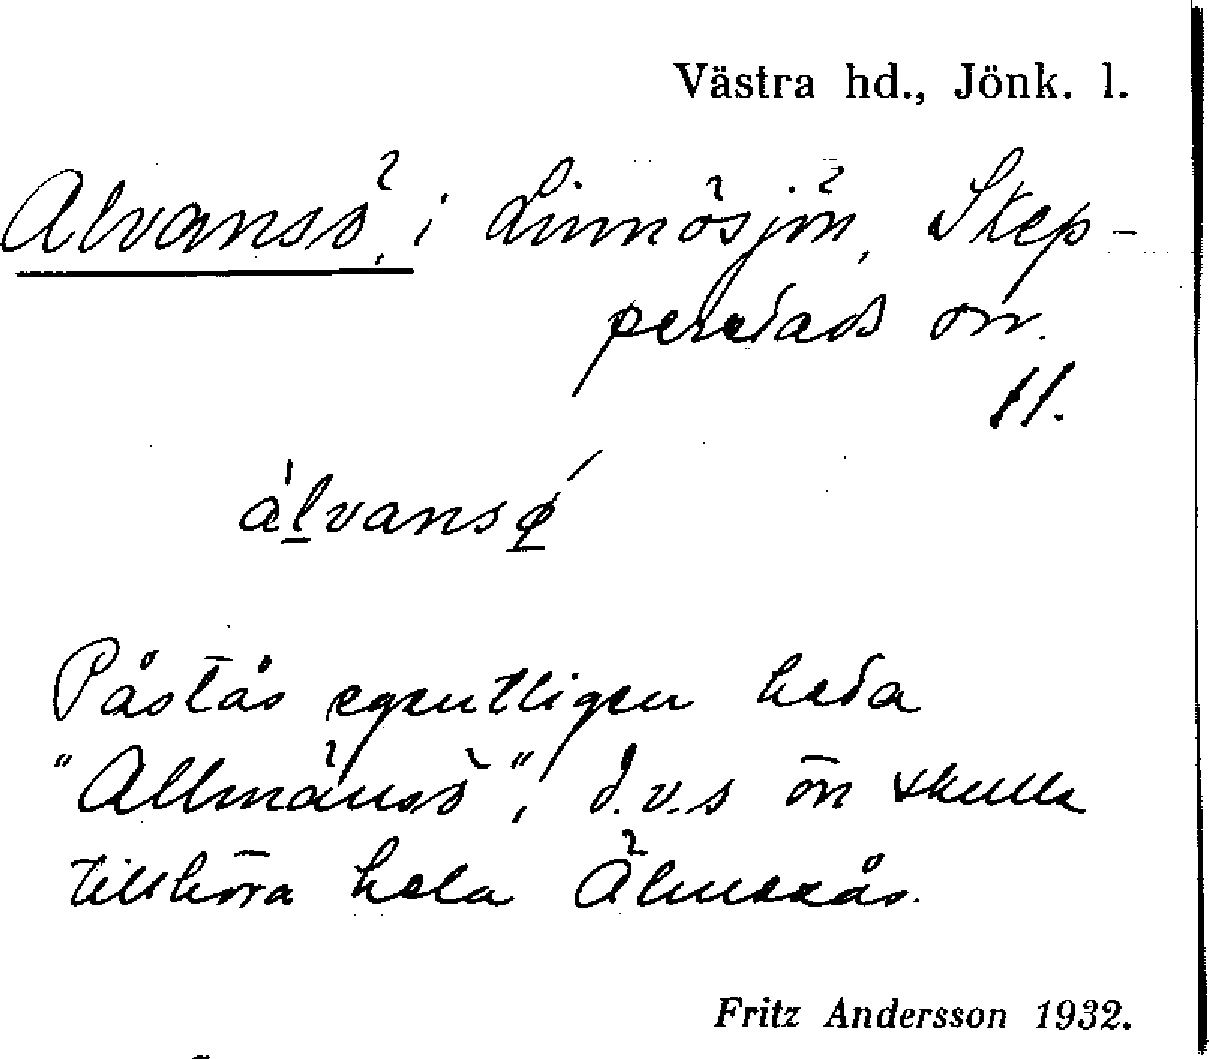 Västra hd., Jönk. l.
Alvansö, i Linnösjön, Skep-
peredads
11.
älvansø
Påstås egentligen heda
"Allmänsö", d.v.s ön skulle
tillhöra hela Älmeskås.
Fritz Andersson 1932.